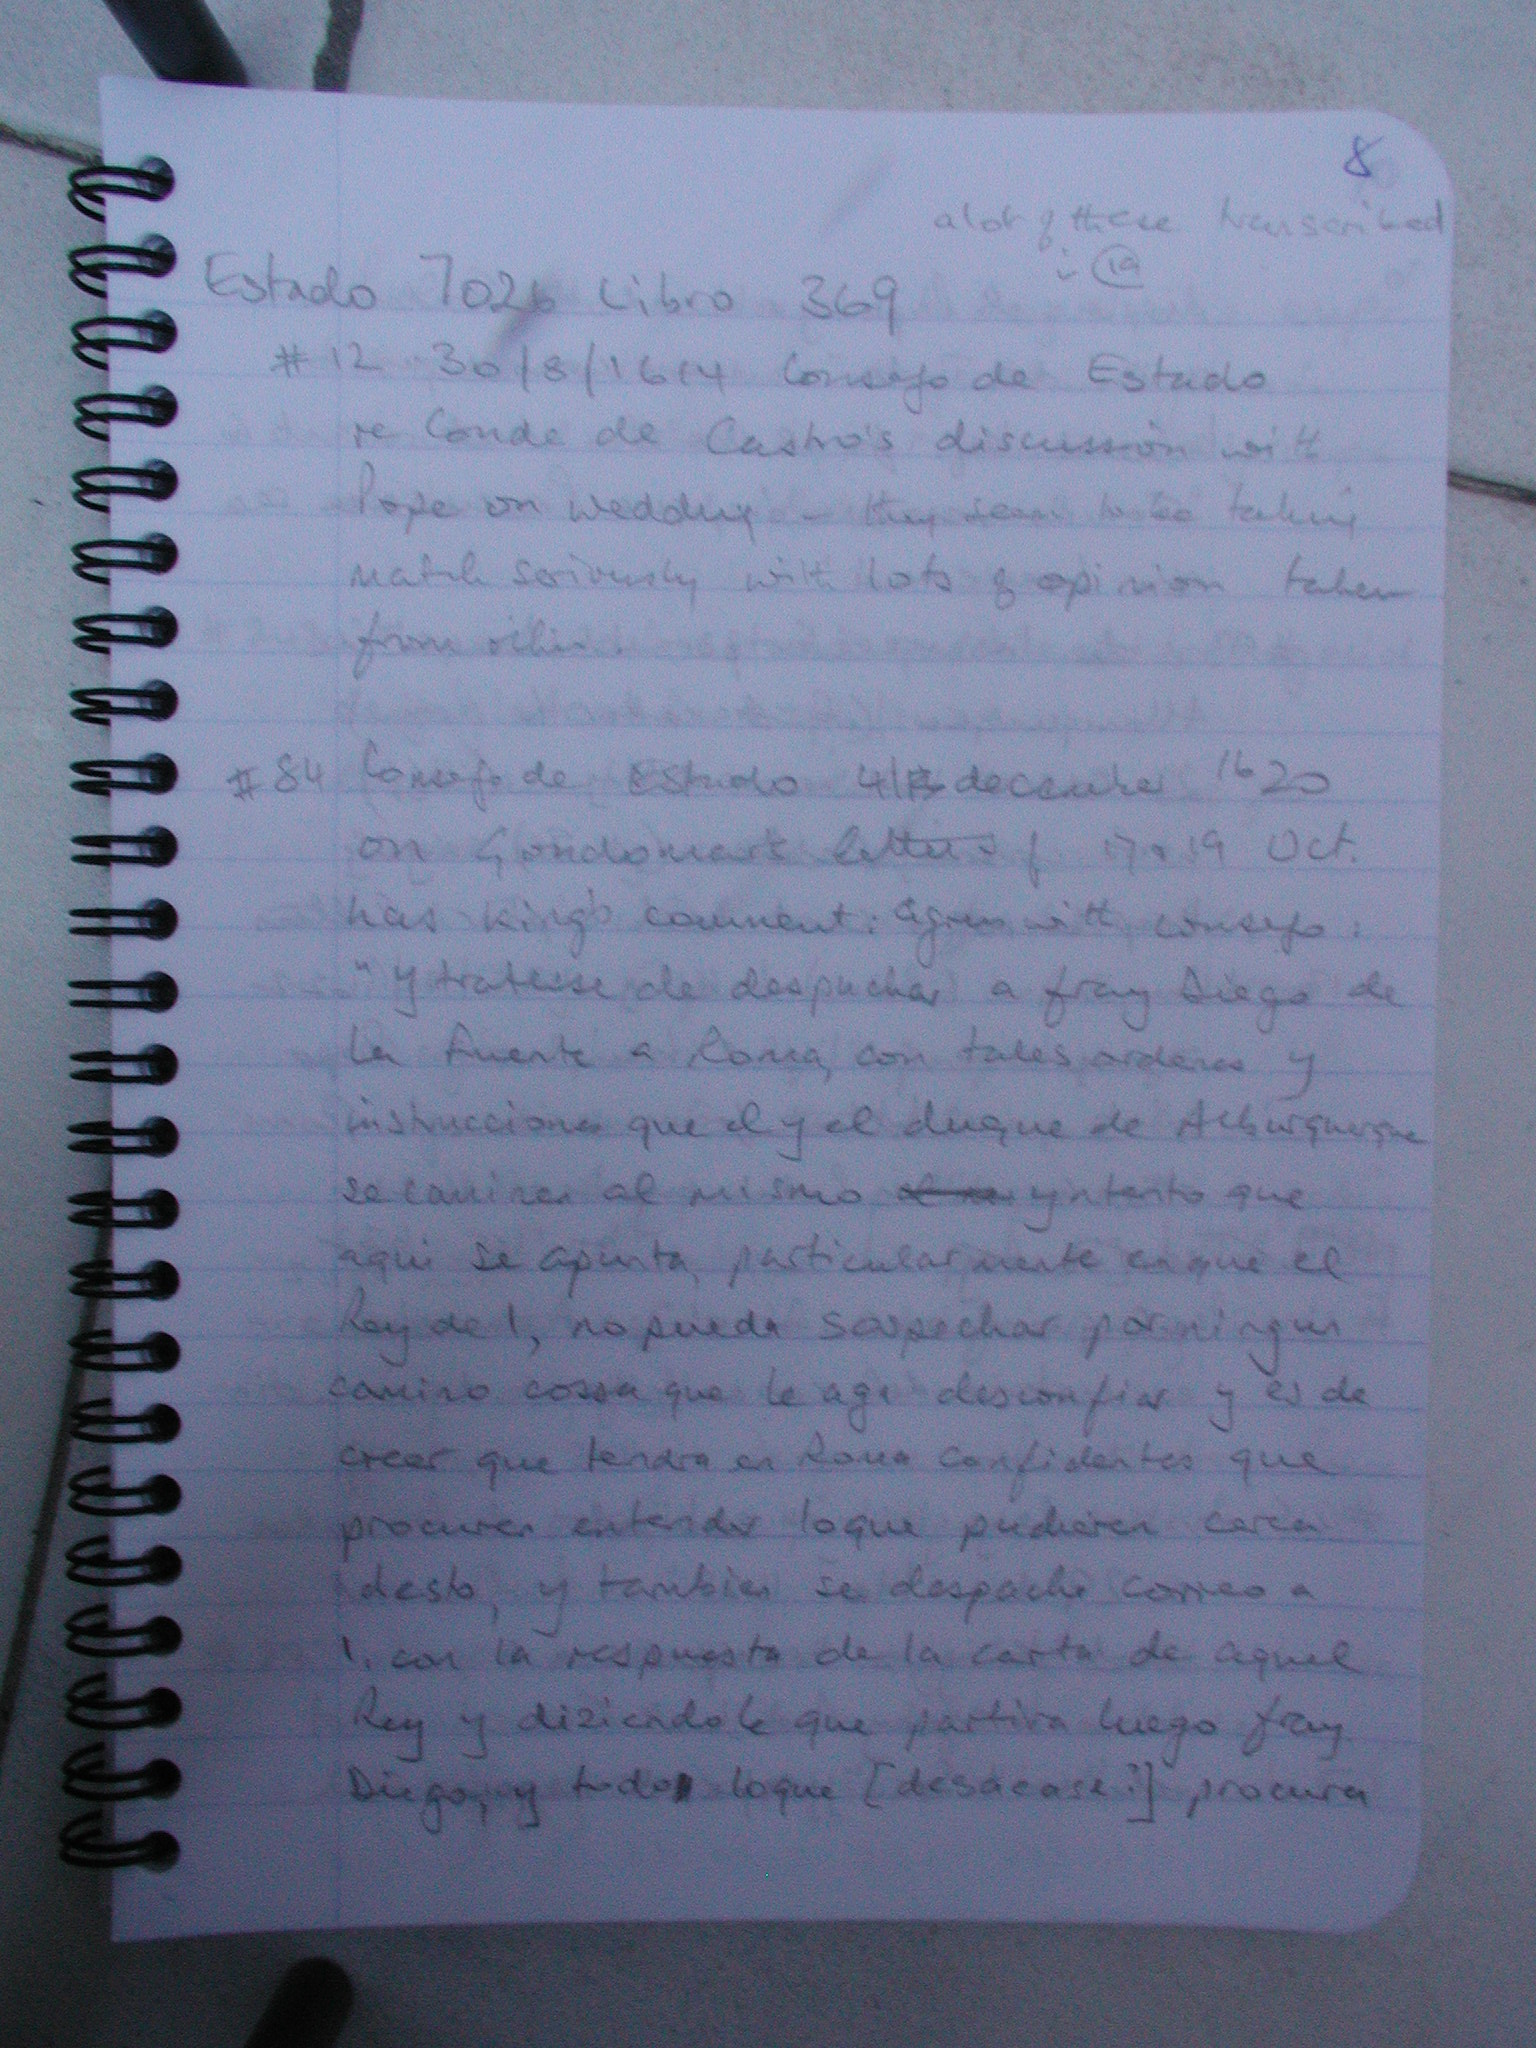 8
a lot of these transcribed
in 19
Estado 7026 Libro 369
#12 30/8/1614 Consejo de Estado
re Conde de Castro's discussion with
Pope on wedding - they seem to be taking
match seriously with lots of opinion taken
from
#84 Consejo de Estado 4 december 1620
on Gondomar's letters of 17 & 19 Oct.
has king's comment: agrees with consejo:
"y tratese de despachar a fray Diego de
la Fuente a Roma, con tales ordenes y
instrucciones que el y el duque de Alburquerque
se caminen al mismo yntento que
aqui se apunta, particularmente en que el
Rey de I, no pueda sospechar por ningun
camino cossa que le aga desconfiar y es de
creer que tendra en Roma confidentes que
procuren entender loque pudieren cerca
desto, y tambien se despache correo a
I. con la respuesta de la carta de aquel
Rey y diziendole que partira luego fray
Diego, y todo loque [desacase?] procura